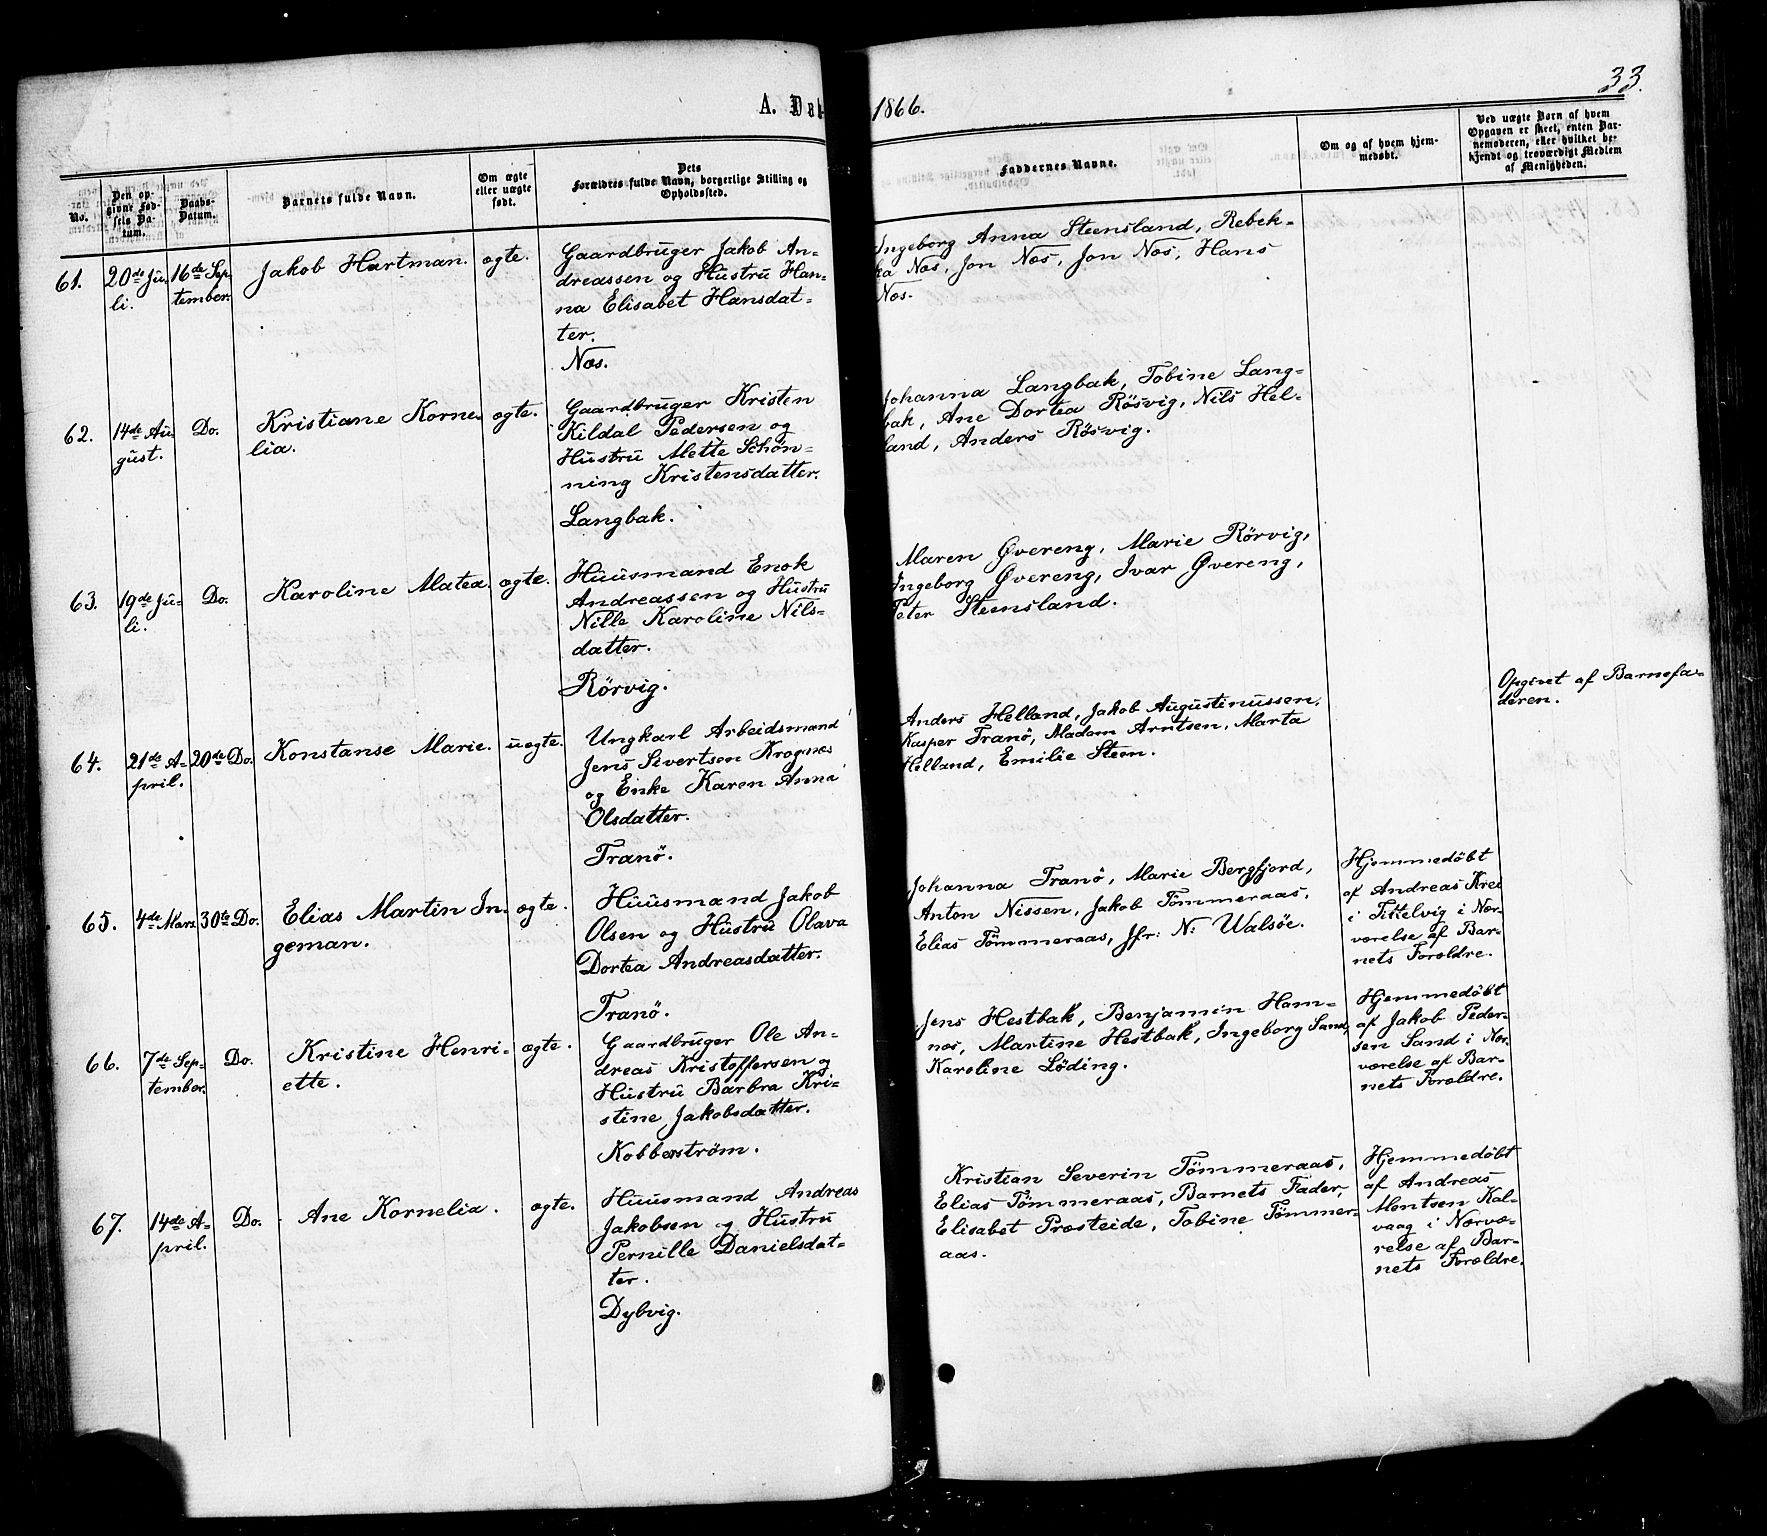 33.
A. Døb
1866.
No.
Den op-
givne Fød-
sels Da-
tum.
Daabs-
Datum.
Barnets fulde Navn.
Om ægte
eller uægte
født.
Dets
Forældres fulde Navn, borgerlige Stilling og
Opholdssted.
Faddernes Navne.
Om og af hvem hjem-
medøbt.
Ved uægte Børn af hvem
Opgaven er skeet, enten Bar-
nemoderen, eller hvilket be-
kjendt og troværdigt Medlem
af Menigheden.
61.
20de Ju-
li.
16de Sep
tember.
Jakob Hartman.
ægte.
Gaardbruger Jakob An-
dreassen og Hustru Han-
na Elisabet Hansdat-
ter.
Næs.
Ingeborg Anna Steensland, Rebek-
ka Næs, Jon Næs, Jon Næs, Hans
Næs.
62.
14de Au-
gust.
Do.
Kristiane Korne-
lia.
ægte.
Gaardbruger Kristen
Kildal Pedersen og
Hustru Mette Schøn-
ning Kristensdatter.
Langbak.
Johanna Langbak, Tobine Lang-
bak, Ane Dortea Rösvig, Nils Hel-
land, Anders Rösvig.
63.
19de Ju-
li.
Do.
Karoline Matea.
ægte.
Huusmand Enok
Andreassen og Hustru
Nille Karoline Nils-
datter.
Rörvig.
Maren Øvereng, Marie Rörvig,
Ingeborg Øvereng, Ivar Øvereng,
Peter Steensland.
64.
21de A-
pril.
20de Do.
Konstanse Marie.
uægte.
Ungkarl Arbeidsmand
Jens Sivertsen Krognæs
og Enke Karen Anna
Olsdatter.
Tranö.
Anders Helland, Jakob Augustinussen,
Kasper Tranö, Madam Arntsen, Marta
Helland, Emilie Steen.
Opgivet af Barnefa-
deren.
65.
4de Mars
30te Do.
Elias Martin In-
geman.
ægte.
Huusmand Jakob
Olsen og Hustru Olava
Dortea Andreasdatter.
Tranö.
Johanna Tranö, Marie Bergfjord,
Anton Nissen, Jakob Tömmeraas,
Elias Tömmeraas, Jfr: N: Walsöe.
Hjemmedöbt
af Andreas Kre
i Tittelvig i Nær-
værelse af Bar-
nets Forældre.
66.
7de Sep-
tember.
Do.
Kristine Henri-
ette.
ægte.
Gaardbruger Ole An-
dreas Kristoffersen og
Hustru Barbra Kri-
stine Jakobsdatter.
Kobberström.
Jens Hestbak, Benjamin Ham-
næs, Martine Hestbak, Ingeborg Sand,
Karoline Löding.
Hjemmedöbt
af Jakob Peder-
sen Sand i Nær-
værelse af Bar-
nets Forældre.
67.
14de A-
pril.
Do.
Ane Kornelia.
ægte.
Huusmand Andreas
Jakobsen og Hustru
Pernille Danielsdat-
ter.
Dybvig.
Kristian Severin Tömmeraas,
Elias Tömmeraas, Barnets Fader,
Elisabet Præsteide, Tobine Tömmer-
aas.
Hjemmedöbt
af Andreas
Montsen Kal-
vaag i Nærvæ-
relse af Bar-
nets Forældre.